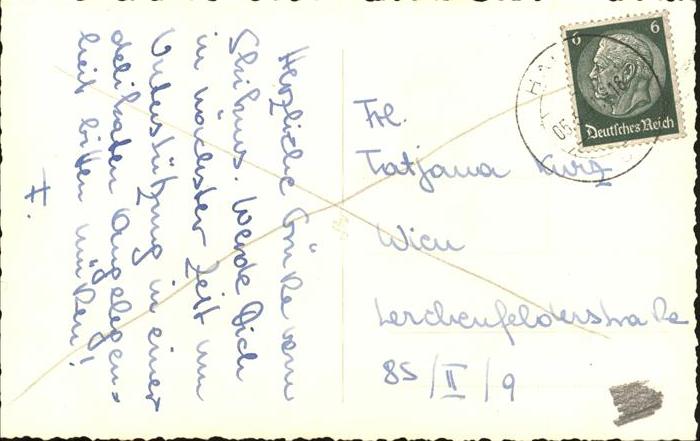 Herzliche Grüße vom
Skikurs. Werde Dich
in nächster Zeit um
Unterstützung in einer
delikaten Angelegen-
heit bitten müßen!
F.
Frl.
Tatjana Kurz
Wien
Lerchenfelderstraße
85/II/9
6 6
Deutsches Reich